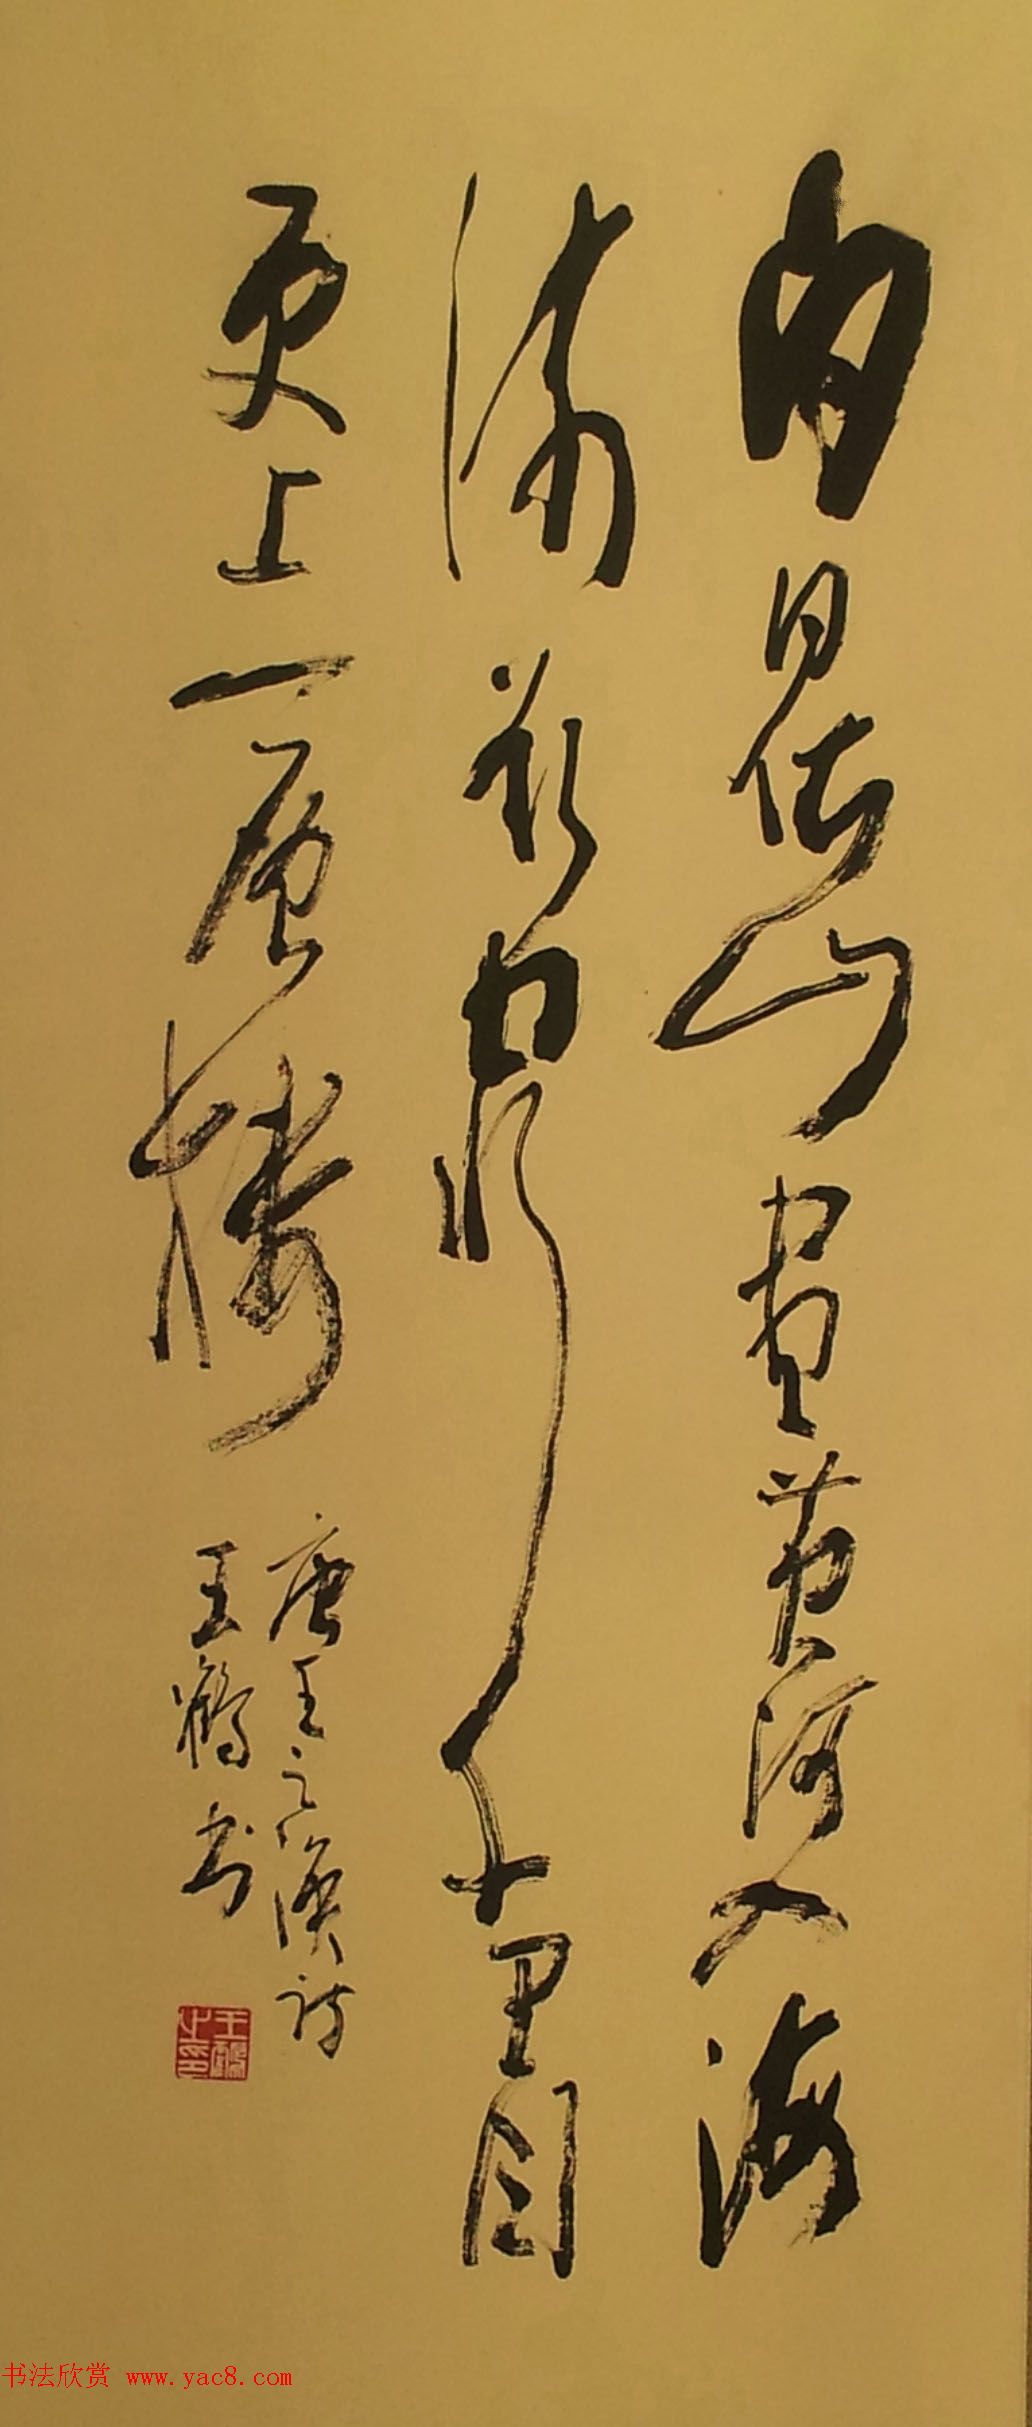 白日依山尽黄河入海
流欲穷千里目
更上一层楼
唐王之涣诗
王鹤书
王鹤之印
书法欣赏 www.yac8.com